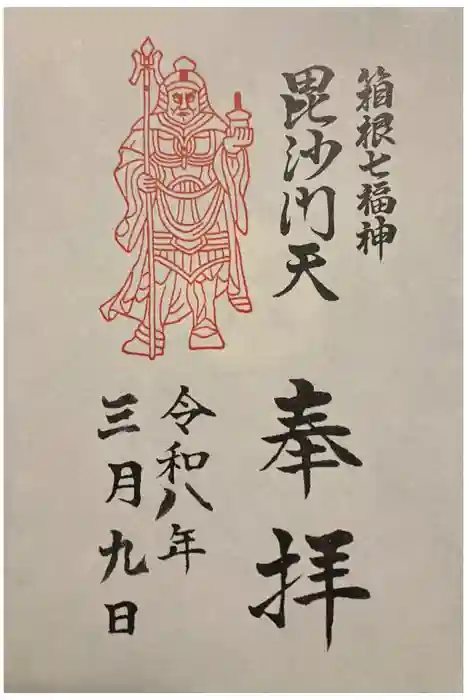 箱根七福神
毘沙門天
奉拝
令和八年
三月九日